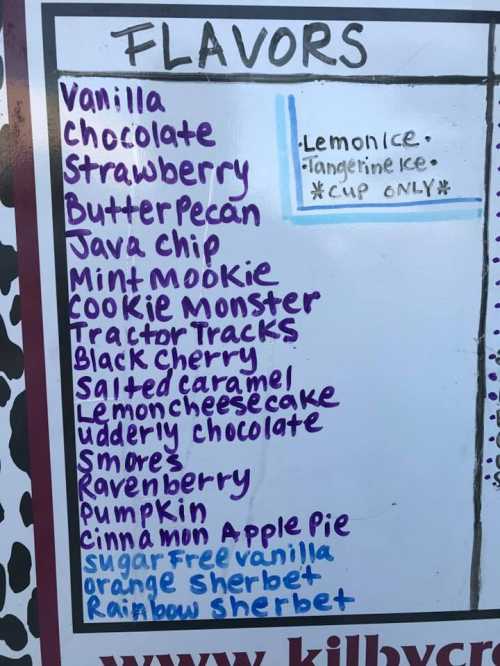 FLAVORS
Vanilla
Chocolate
Strawberry
Butter Pecan
Java Chip
Mint Mookie
Cookie Monster
Tractor Tracks
Black Cherry
Salted caramel
Lemon cheesecake
udderly chocolate
Smores
Ravenberry
Pumpkin
Cinnamon Apple Pie
sugar Free vanilla
orange sherbet
Rainbow sherbet
•Lemon Ice•
•Tangerine Ice•
*CUP ONLY*
www.kilbycr